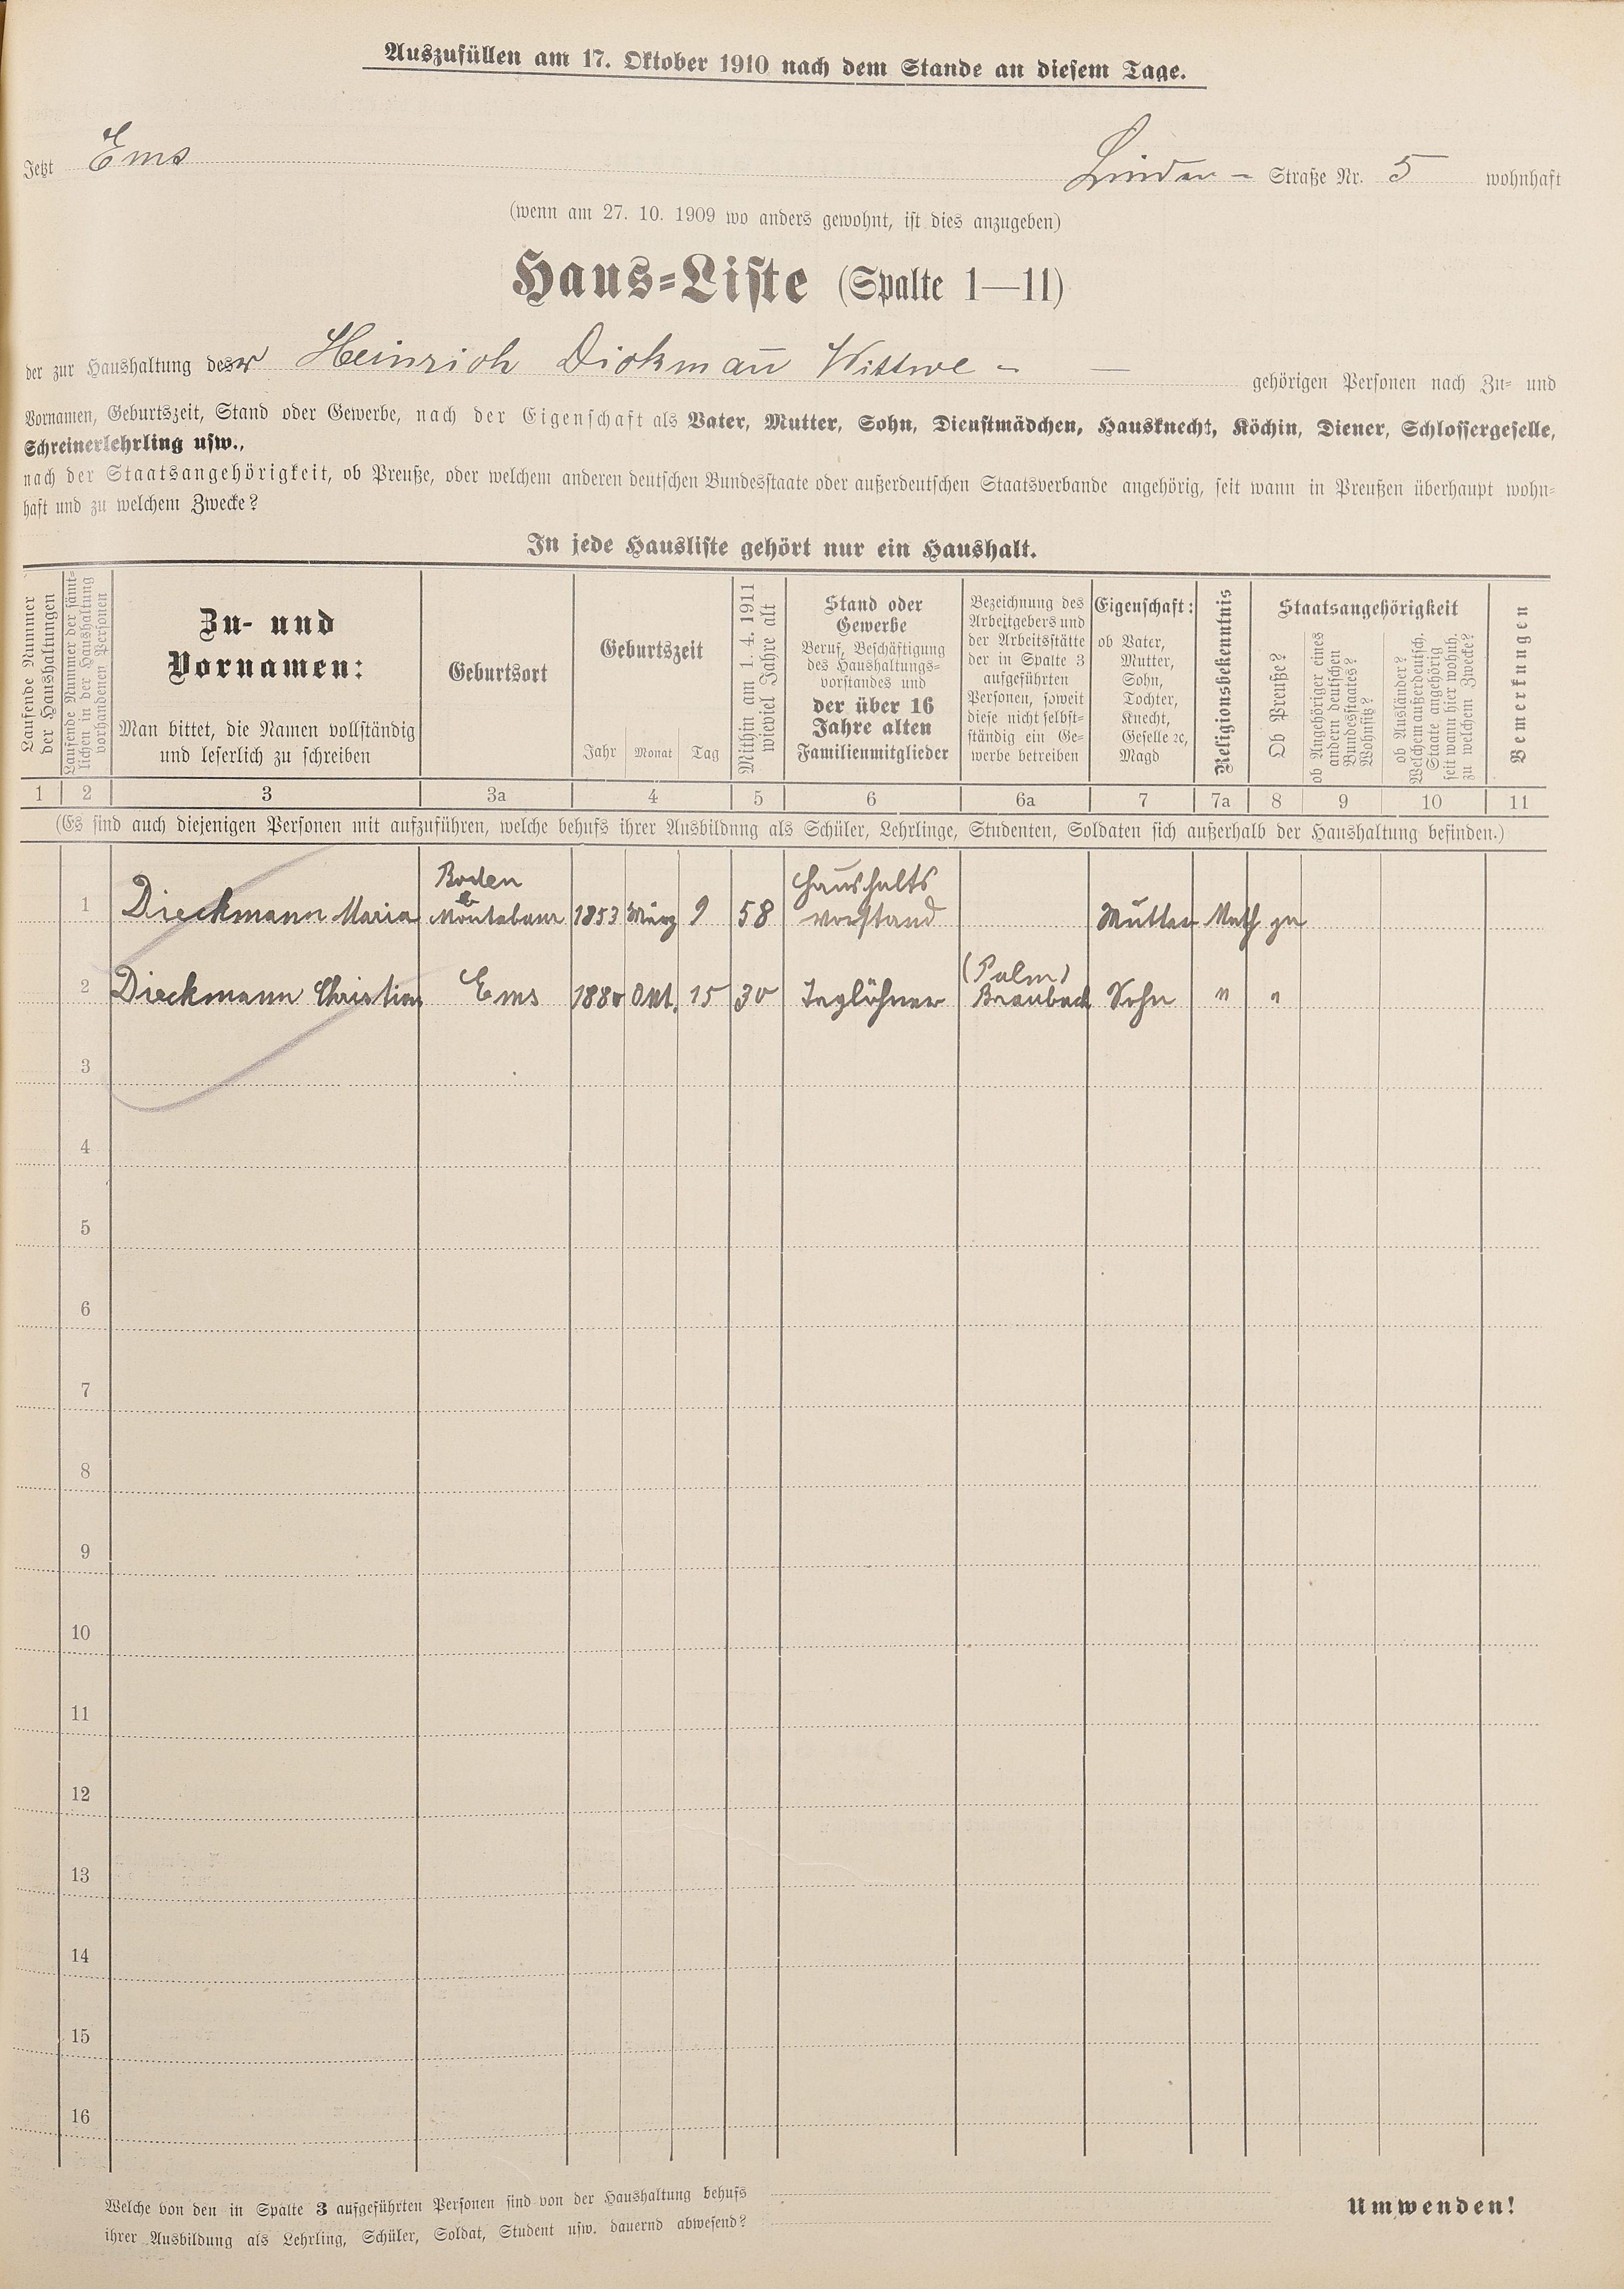 Auszufüllen am 17. Oktober 1910 nach dem Stande an diesem Tage.
Jetzt Ems Linden- Straße Nr. 5 wohnhaft
(wenn am 27. 10. 1909 wo anders gewohnt, ist dies anzugeben)
Haus-Liste (Spalte 1—11)
der zur Haushaltung des Heinrich Dickmañ Wittwe - — gehörigen Personen nach Zu- und
Vornamen, Geburtszeit, Stand oder Gewerbe, nach der Eigenschaft als Vater, Mutter, Sohn, Dienstmädchen, Hausknecht, Köchin, Diener, Schlossergeselle,
Schreinerlehrling usw.,
nach der Staatsangehörigkeit, ob Preuße, oder welchem anderen deutschen Bundesstaate oder außerdeutschen Staatsverbande angehörig, seit wann in Preußen überhaupt wohn-
haft und zu welchem Zwecke?
In jede Hausliste gehört nur ein Haushalt.
Laufende Nummer
der Haushaltungen
Laufende Nummer der sämt-
lichen in der Haushaltung
vorhandenen Personen
Zu- und
Vornamen:
Man bittet, die Namen vollständig
und leserlich zu schreiben
Geburtsort
Geburtszeit
Jahr Monat Tag
Mithin am 1. 4. 1911
wieviel Jahre alt
Stand oder
Gewerbe
Beruf, Beschäftigung
des Haushaltungs-
vorstandes und
der über 16
Jahre alten
Familienmitglieder
Bezeichnung des
Arbeitgebers und
der Arbeitsstätte
der in Spalte 3
aufgeführten
Personen, soweit
diese nicht selbst-
ständig ein Ge-
werbe betreiben
Eigenschaft:
ob Vater,
Mutter,
Sohn,
Tochter,
Knecht,
Geselle ꝛc,
Magd
Religionsbekenntnis
Staatsangehörigkeit
Ob Preuße?
ob Angehöriger eines
andern deutschen
Bundesstaates?
Wohnsitz?
ob Ausländer?
Welchem außerdeutsch.
Staate angehörig
seit wann hier wohnh.
zu welchem Zwecke?
Bemerkungen
1 2 3 3a 4 5 6 6a 7 7a 8 9 10 11
(Es sind auch diejenigen Personen mit aufzuführen, welche behufs ihrer Ausbildung als Schüler, Lehrlinge, Studenten, Soldaten sich außerhalb der Haushaltung befinden.)
Boden Haushalts
1 Dieckmann Maria Montabaur 1853 März 9 58 vorstand Mutter ja
(Palm)
2 Dieckmann Christian Ems 1880 Okt. 15 30 Taglöhner Braubach Sohn " "
3
4
5
6
7
8
9
10
11
12
13
14
15
16
Welche von den in Spalte 3 aufgeführten Personen sind von der Haushaltung behufs
ihrer Ausbildung als Lehrling, Schüler, Soldat, Student usw. dauernd abwesend?
Umwenden!